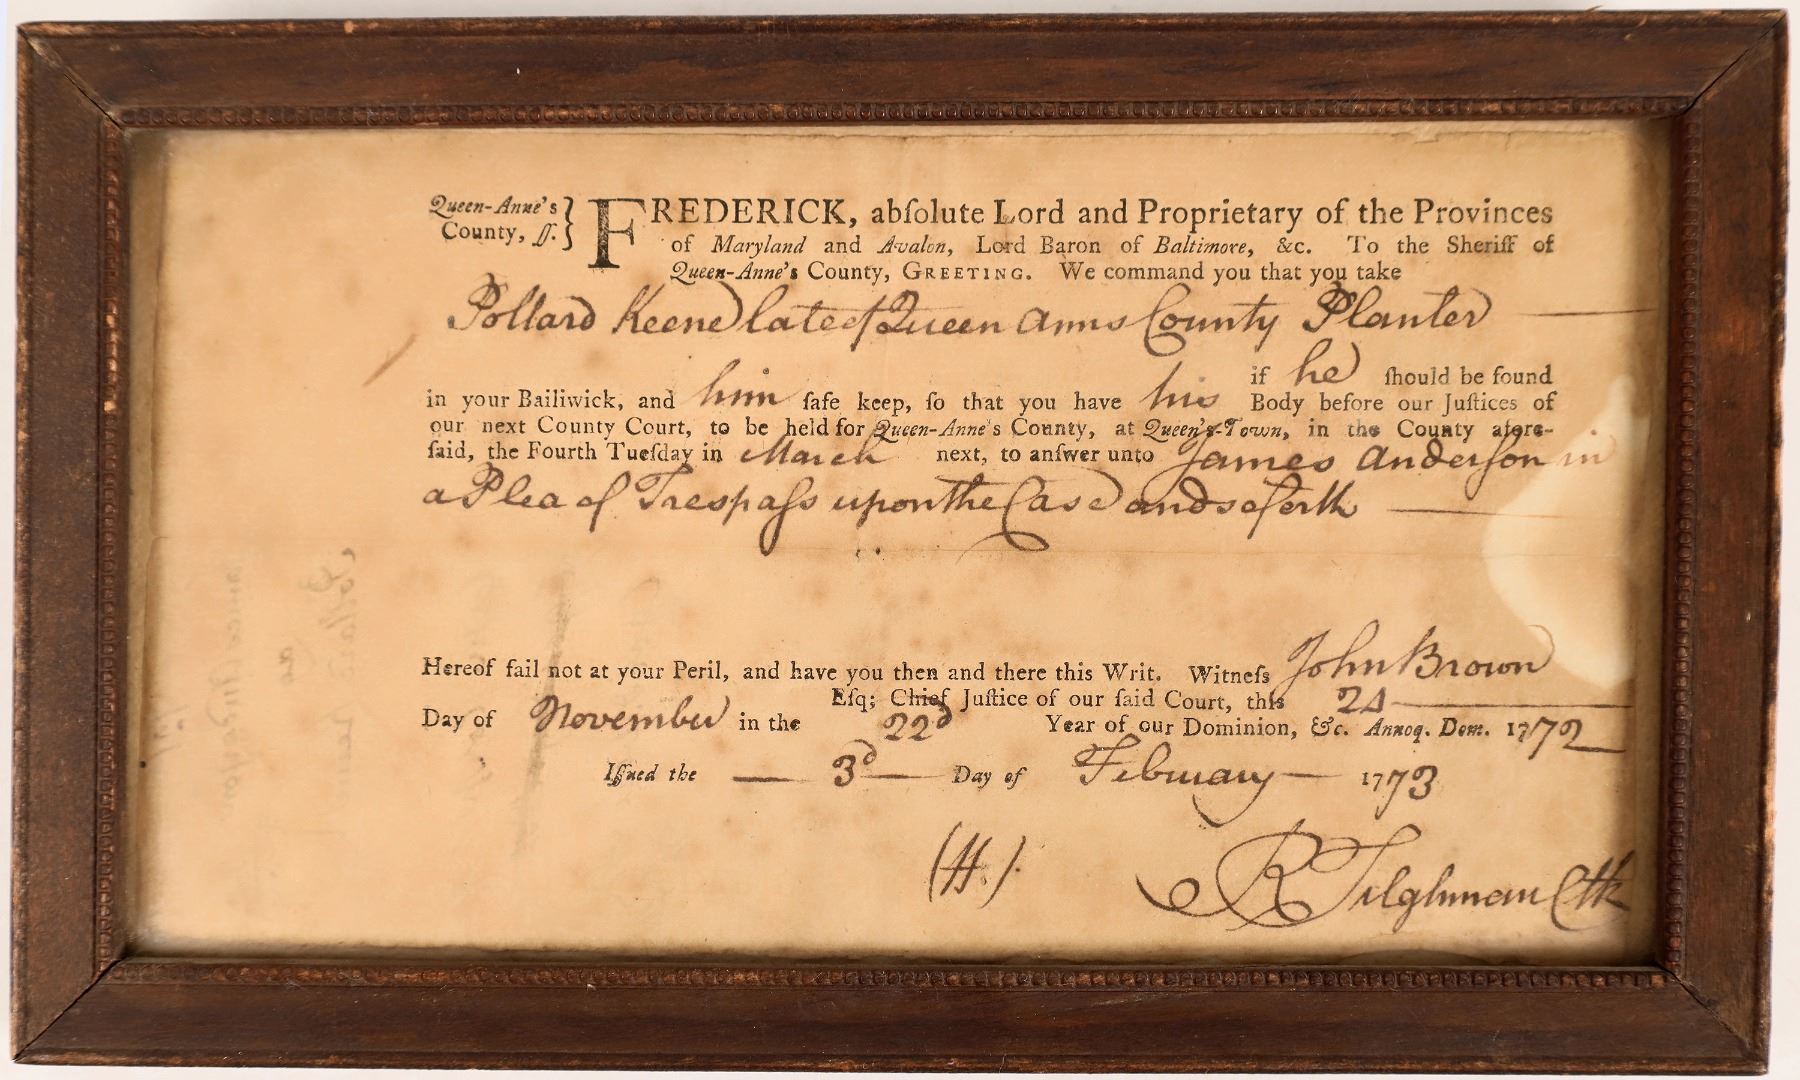 Queen-Anne's County, ſſ.
FREDERICK, abſolute Lord and Proprietary of the Provinces
of Maryland and Avalon, Lord Baron of Baltimore, &c. To the Sheriff of
Queen-Anne's County, GREETING. We command you that you take
Pollard Keene late of Queen Anns County Planter
if he ſhould be found
in your Bailiwick, and him ſafe keep, ſo that you have his Body before our Juſtices of
our next County Court, to be held for Queen-Anne's County, at Queen's-Town, in the County afore-
ſaid, the Fourth Tueſday in March next, to anſwer unto James Anderſon in
a Plea of Treſpaſs upon the Case and so forth
Hereof fail not at your Peril, and have you then and there this Writ. Witneſs John Brown
Eſq; Chief Juſtice of our ſaid Court, this 24
Day of November in the 22d Year of our Dominion, &c. Annoq. Dom. 1772
Iſſued the 3d Day of February 1773
(H.)
R Tilghman Clk